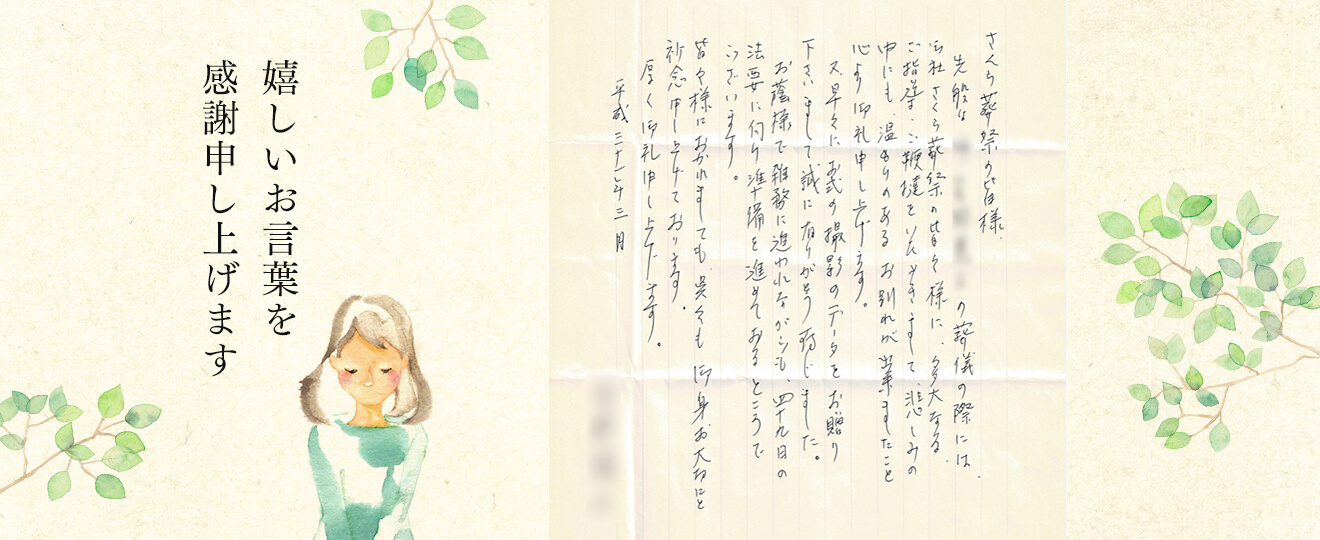 嬉しいお言葉を
感謝申し上げます
さくら葬祭の皆様
先般は の葬儀の際には、
御社さくら葬祭の皆々様に、多大なる
ご指導、ご鞭撻をいただきまして、悲しみの
中にも、温もりのあるお別れが出来ましたこと
心より御礼申し上げます。
又、早々にお式の撮影のデータをお贈り
下さいまして誠に有りがとう存じました。
お蔭様で雑務に追われながらも、四十九日の
法要に向け準備を進めておるところで
ございます。
皆々様におかれましても、呉々も御身お大切にと
祈念申し上げております。
厚く御礼申し上げます。
平成三十一年三月